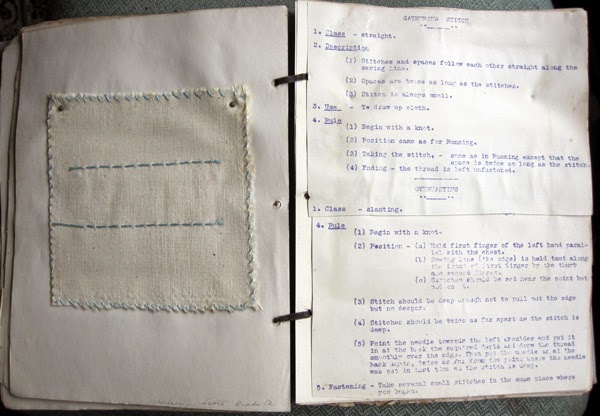 GATHERING STITCH
1. Class - straight.
2. Description
(1) Stitches and spaces follow each other straight along the
sewing line.
(2) Spaces are twice as long as the stitches.
(3) Stitch is always small.
3. Use - To draw up cloth.
4. Rule
(1) Begin with a knot.
(2) Position same as for Running.
(3) Taking the stitch, - same as in Running except that the
space is twice as long as the stitch.
(4) Ending - the thread is left unfastened.
OVERCASTING
1. Class - slanting.
4. Rule
(1) Begin with a knot.
(2) Position - (a) Hold first finger of the left hand paral-
lel with the chest.
(b) Sewing line (the edge) is held taut along
the front of first finger by the thumb
and second finger.
(c) Stitches should be set near the point but
not on it.
(3) Stitch should be deep enough not to pull out the edge
but no deeper.
(4) Stitches should be twice as far apart as the stitch is
deep.
(5) Point the needle towards the left shoulder and put it
in at the back the required depth and draw the thread
smoothly over the edge. Then put the needle in at the
back again, twice as far from the point where the needle
was put in last time as the stitch is deep.
5. Fastening - Take several small stitches in the same place where
you began.